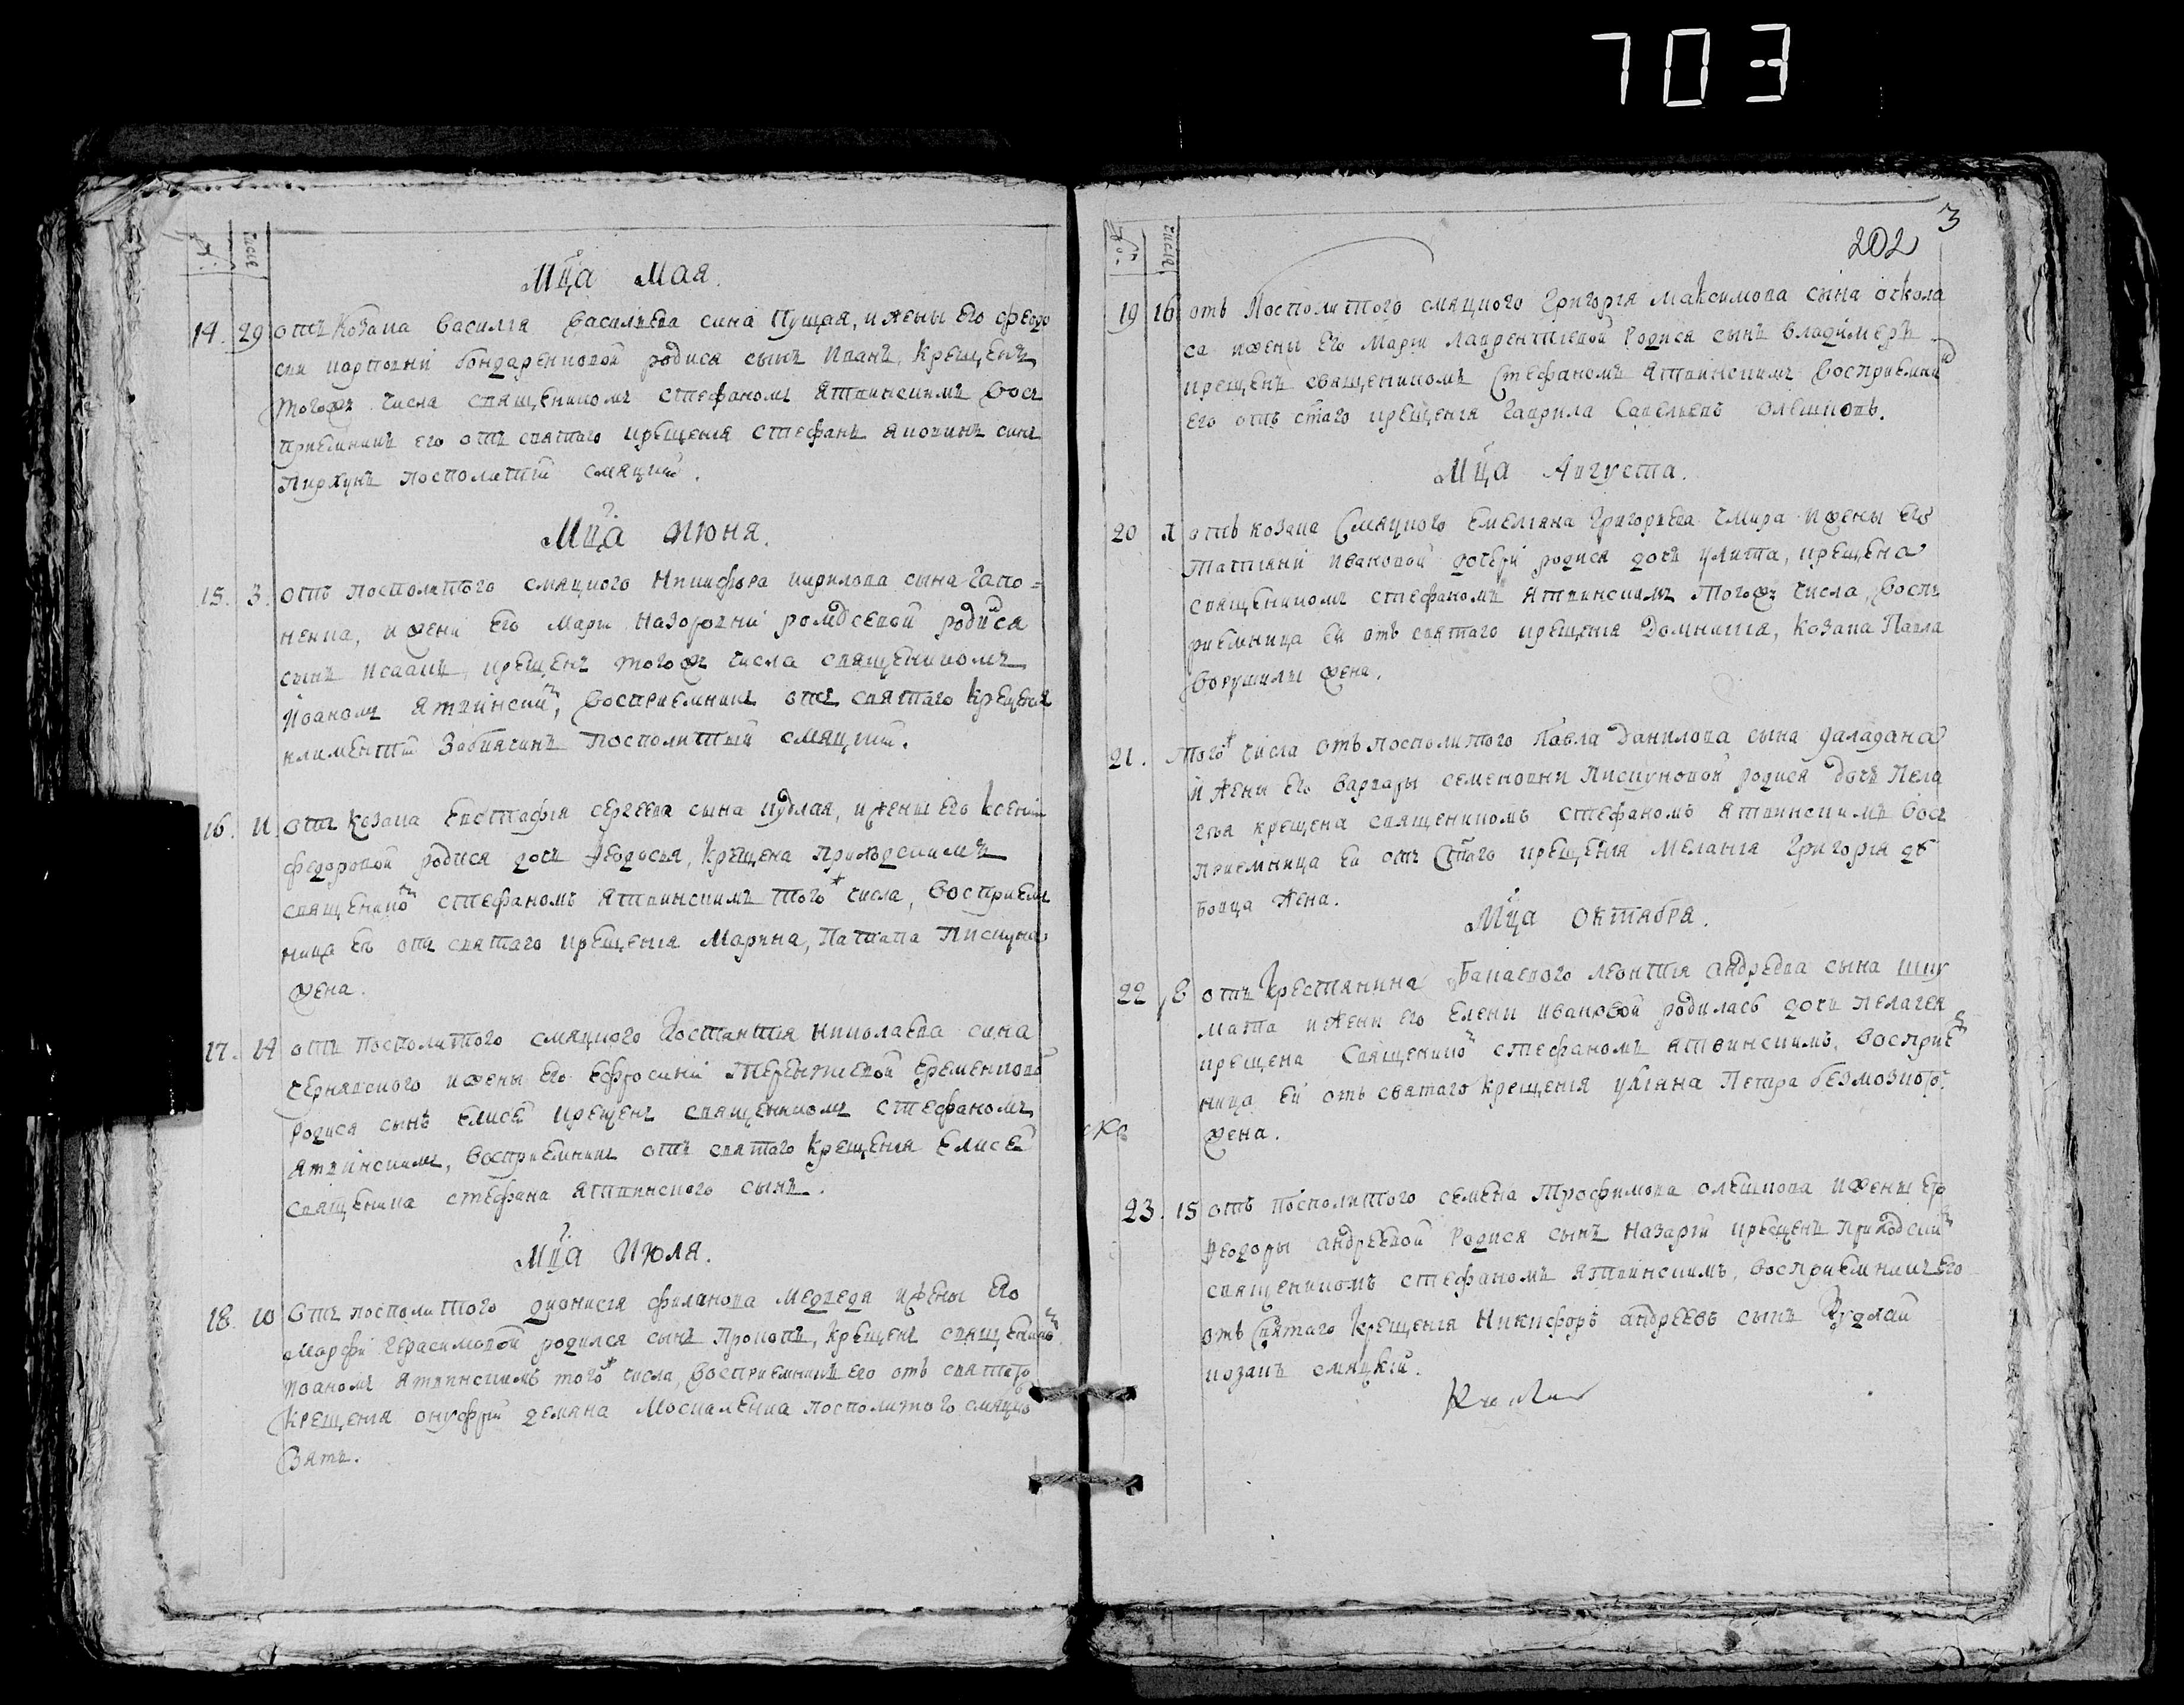 703
3
202
числа
Мц̃а Мая.
14. 29 отъ козака василія васильева сина Пущая, и жены его феодо
сіи карповни бондаренковой родися сынъ иванъ, крещенъ
тогожъ числа священикомъ стефаномъ ятвинскимъ вос
приемникъ его отъ святаго крещенія стефанъ яковинъ синъ
посполитій смяцкій.
Мц̃а июня.
15. 3. отъ посполитого смяцкого Никифора кирилова сына гапо=
ненка, и жени его Мари Назоровни родися
сынъ исаакъ, крещенъ тогожъ числа священикомъ
иоаномъ ятвинским, восприемникъ отъ святаго крещенія
климентій Забиячинъ посполитый смяцкій.
16. 11. отъ козака евстафія сергеева сына кудлая, и жены его ксеніи
федоровой родися дочъ феодосья, крещена приходскимъ
священиком стефаномъ ятвинскимъ того ж числа, восприем
ница ея отъ святаго крещенія Марина, Пискуна
жена.
17. 14 отъ посполитого смяцкого Костантія николаева сина
чернявского и жены его ефросиніи терентиевой еременковой
родися сынъ елисей крещенъ священикомъ стефаномъ
ятвинскимъ, восприемникъ отъ святого крещенія елисей
священика стефана ятвинского сынъ.
Мц̃а июля.
18. 10 отъ посполитого дионисія филипова медведя и жены его
марфи герасимовой родился сынъ прокопъ, крещенъ священиком
иоаномъ ятвинскимъ того ж числа, восприемникъ его отъ святаго
крещенія онуфрій демяна москаленка посполитого смяцко
зять.
числа
19 16 отъ посполитого смяцкого григорія максимова сына
са и жены его Марии лаврентіевой родися сынъ владимеръ
крещенъ священикомъ стефаномъ ятвинскимъ восприемник
его отъ стаго крещенія гаврила савельевъ олешковъ.
Мц̃а Августа.
20 1 отъ козака смяцкого емеліяна григорьева чмира и жены его
татіяни ивановой дочери родися дочъ улита, крещена
священикомъ стефаномъ ятвинскимъ тогожъ числа, восп
риемница ей отъ святаго крещенія домникія, козака павла
ворушили жена.
21. того ж числа отъ посполитого павла данилова сына даладана
и жены его варвары семеновни пискуновой родися дочъ пела
гѣя крещена священикомъ стефаномъ ятвинскимъ вос
приемница ей отъ стаго крещенія меланія григорія дѣ
бовца жена.
Мц̃а октября.
22 8 отъ крестянина бакаевого леонтія андреева сына шку
мата и жени его елени ивановой родилась дочъ пелагея
крещена священиком стефаномъ ятвинскимъ, восприем
ница ей отъ святаго крещенія уліяна петра безмозкого
жена.
23. 15 отъ посполитого семена трофимова олешкова и жены его
феодоры андреевой родися сынъ назарій крещенъ приходским
священикомъ стефаномъ ятвинскимъ, восприемникъ его
отъ святаго крещенія никифоръ андреевъ сынъ кудлай
козакъ смяцкій.